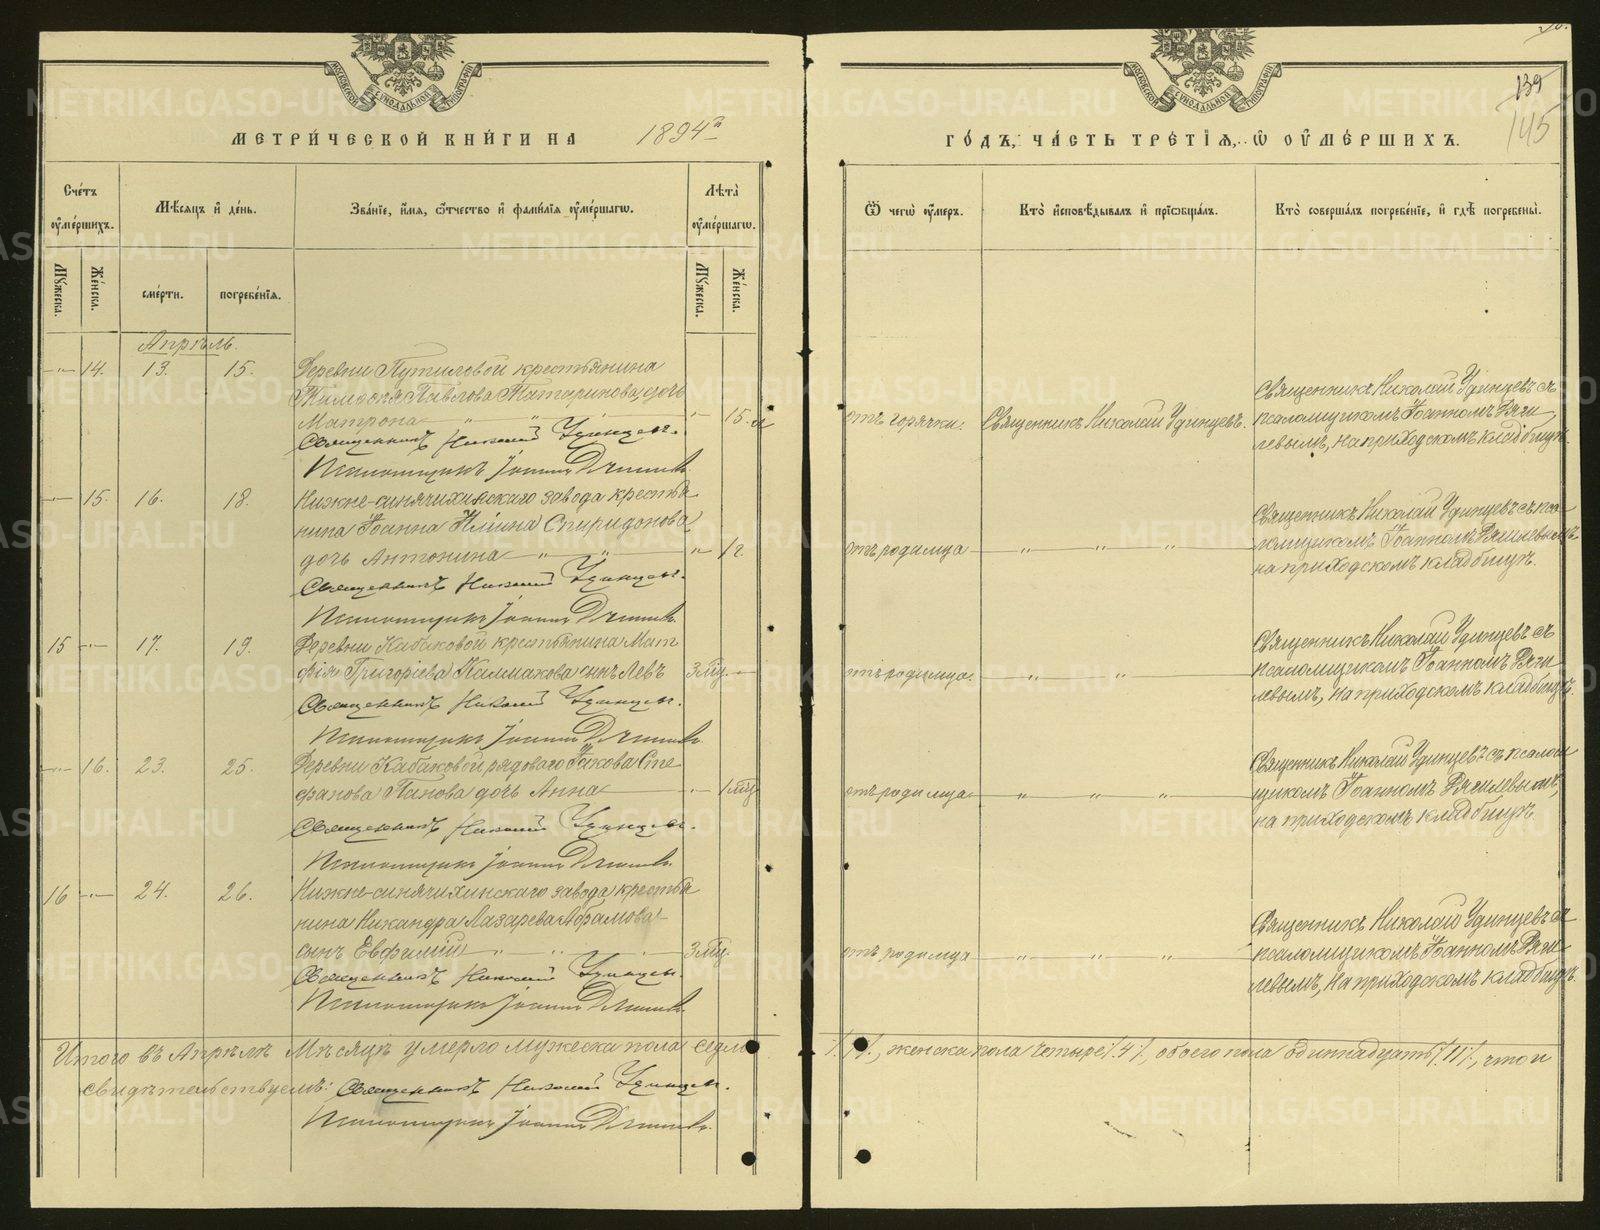 МЕТРИЧЕСКОЙ КНИГИ НА 1894 г.
ГОДЪ, ЧАСТЬ ТРЕТІЯ, Ѡ ОУМЕРШИХЪ.
139
145
Счетъ оумершихъ.
Мѣсяцъ и день.
Званіе, имя, ѿчество и фамилія оумершагѡ.
Лѣта оумершагѡ.
Мужеска.
Женска.
смерти.
погребенія.
Мужеска.
Женска.
Ѿ чегѡ оумеръ.
Кто исповѣдывалъ и пріѡбщалъ.
Кто совершалъ погребеніе, и гдѣ погребены.
Апрѣль.
-"- 14. 13. 15. Деревни Путиловой крестьянина
Тимофея Павлова Татаринова, дочь
Матрона -"- 15
Священникъ Николай Удинцевъ.
Псаломщикъ Іоаннъ
отъ горячки. Священникъ Николай Удинцевъ.
Священникъ Николай Удинцевъ съ
псаломщикомъ Іоанномъ
левымъ, на приходскомъ кладбищѣ.
-"- 15. 16. 18. Нижне-синячихинскаго завода крестья
нина Іоанна Ильина Спиридонова
дочь Антонина -"- 1 г
Священникъ Николай Удинцевъ.
Псаломщикъ Іоаннъ
отъ родимца -"-
Священникъ Николай Удинцевъ съ псало
мщикомъ Іоанномъ
на приходскомъ кладбищѣ.
15 -"- 17. 19. Деревни Кабаковой крестьянина Мат
фія Григорьева Калмакова сынъ Левъ 3 мѣц. -
Священникъ Николай Удинцевъ.
Псаломщикъ Іоаннъ
отъ родимца. -"-
Священникъ Николай Удинцевъ съ
псаломщикомъ Іоанномъ
левымъ, на приходскомъ кладбищѣ.
-"- 16. 23. 25. Деревни Кабаковой рядоваго Іакова Сте
фанова Панова дочь Анна -"- 1 мѣц
Священникъ Николай Удинцевъ.
Псаломщикъ Іоаннъ
отъ родимца -"-
Священникъ Николай Удинцевъ съ псалом
щикомъ Іоанномъ
на приходскомъ кладбищѣ.
16 -"- 24. 26. Нижне-синячихинскаго завода крестья
нина Никандра Лазарева Абрамова
сынъ Евфимій -"- 3 мѣц.
Священникъ Николай Удинцевъ.
Псаломщикъ Іоаннъ
отъ родимца -"-
Священникъ Николай Удинцевъ съ
псаломщикомъ Іоанномъ
левымъ, на приходскомъ кладбищѣ.
Итого въ Апрѣлѣ мѣсяцѣ умерло мужеска пола седмь /7/, женска пола четыре /4/, обоего пола одиннадцать /11/, что и
свидѣтельствуемъ: Священникъ Николай Удинцевъ.
Псаломщикъ Іоаннъ
МОСКОВСКОЙ СѴНОДАЛЬНОЙ ТИПОГРАФІИ
МОСКОВСКОЙ СѴНОДАЛЬНОЙ ТИПОГРАФІИ
METRIKI.GASO-URAL.RU